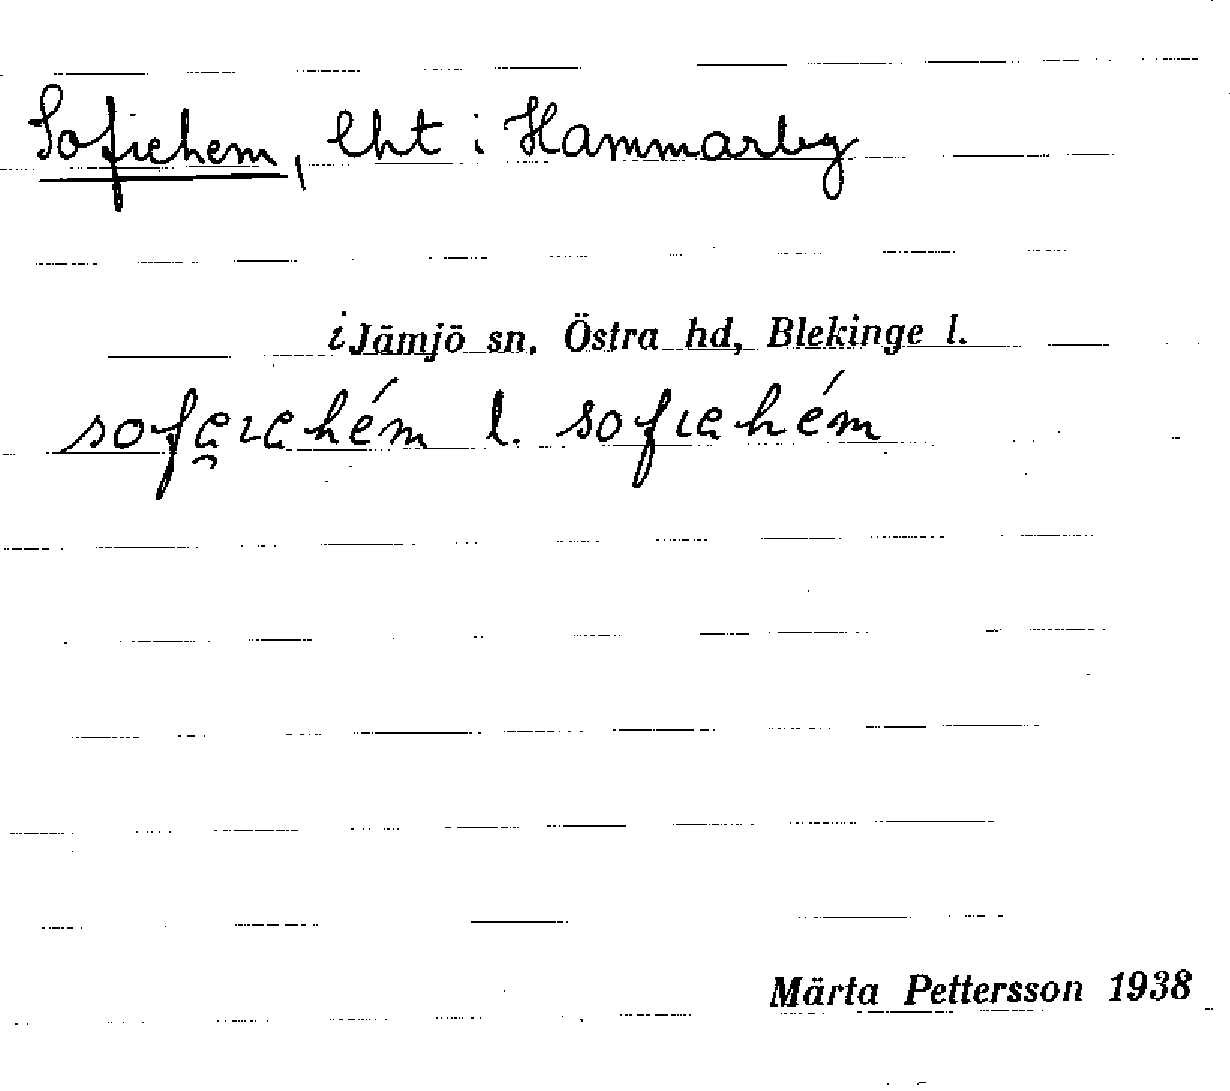 Sofiehem, lht i Hammarby
i Jämjö sn. Östra hd, Blekinge l.
sofe̯ɩehém l. sofɩehém
Märta Pettersson 1938